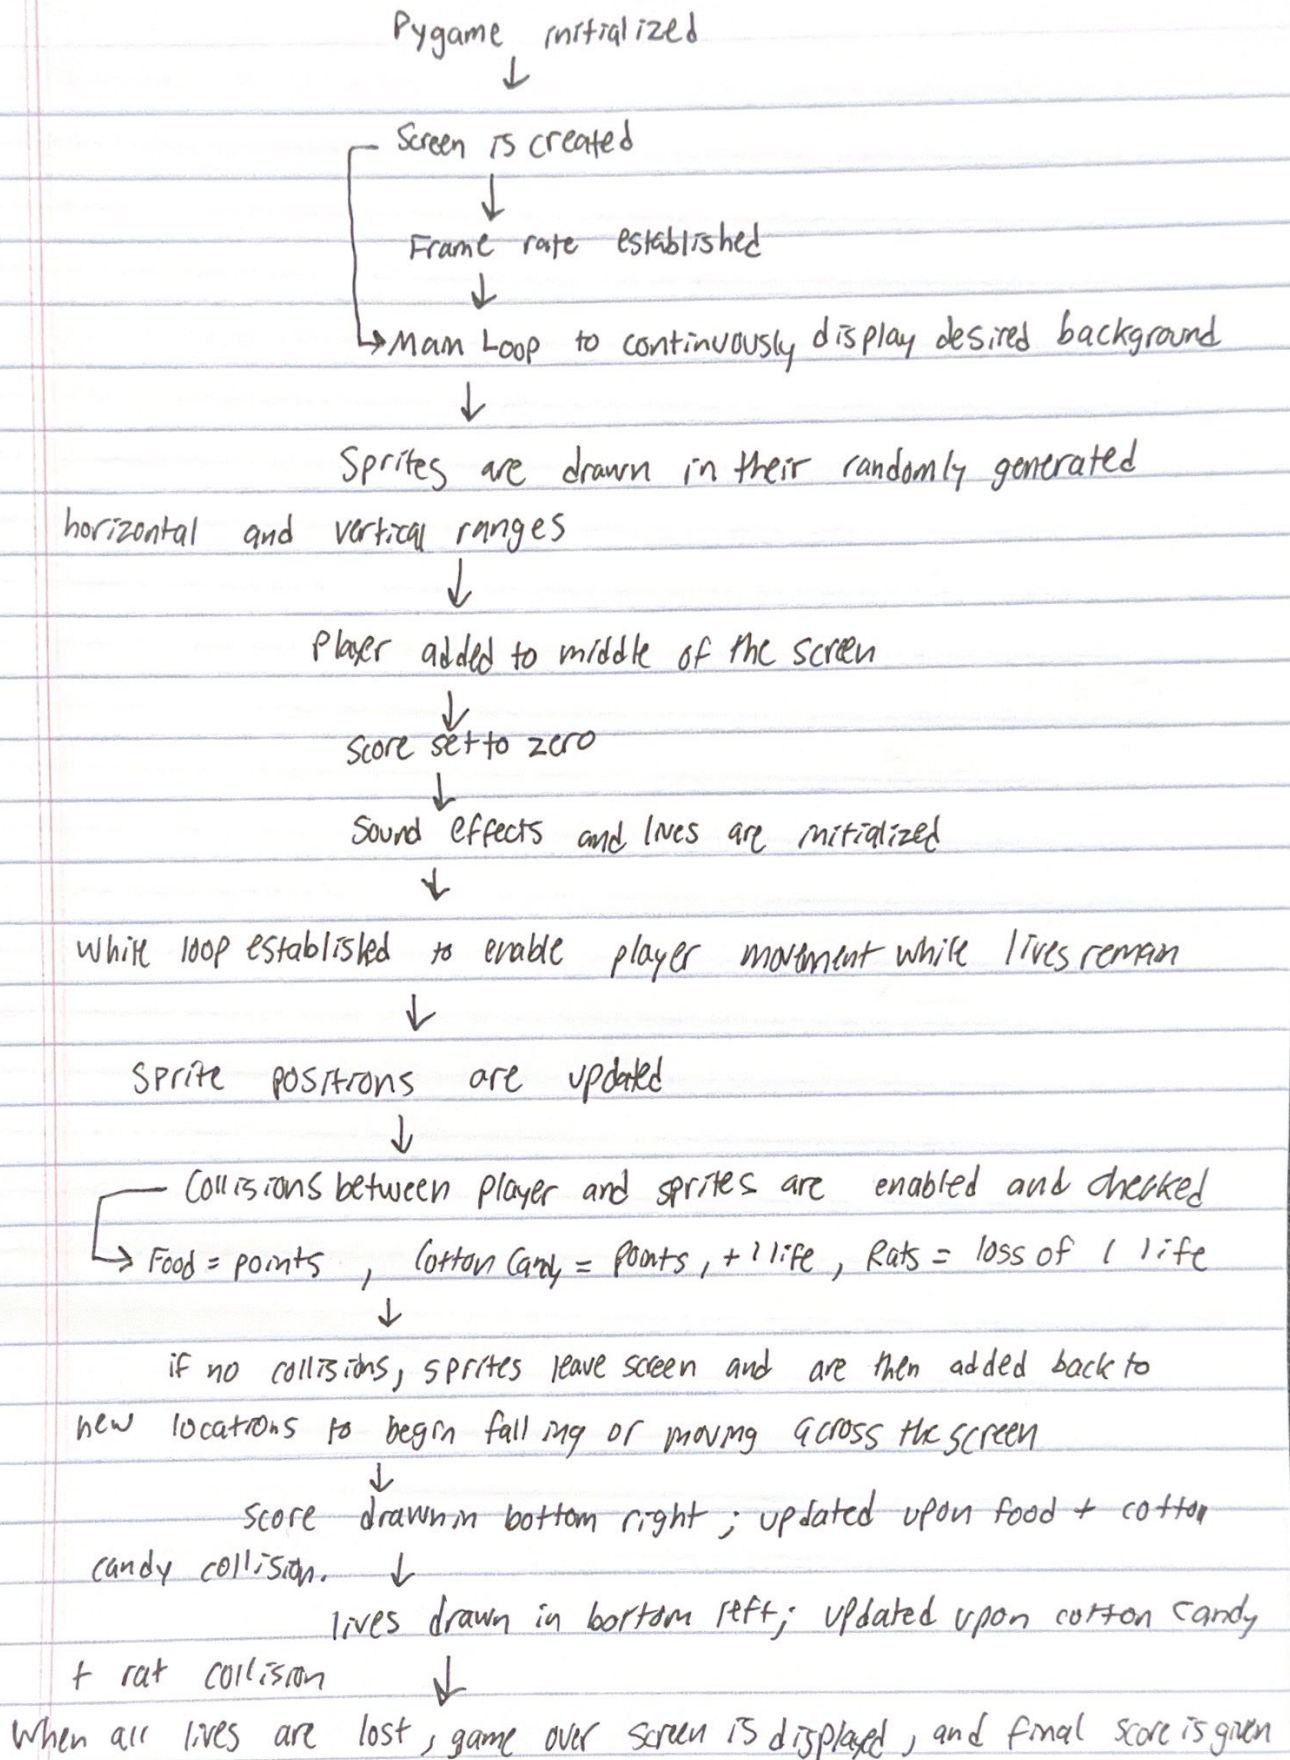 Pygame initialized
Screen is created
Frame rate established
Main Loop to continuously display desired background
Sprites are drawn in their randomly generated
horizontal and vertical ranges
Player added to middle of the screen
Score set to zero
Sound effects and lives are initialized
While loop established to enable player movement while lives remain
Sprite positions are updated
Collisions between player and sprites are enabled and checked
Food = points, Cotton Candy = Points, + 1 life, Rats = loss of 1 life
if no collisions, sprites leave screen and are then added back to
new locations to begin falling or moving across the screen
Score drawn in bottom right; updated upon food + cotton
candy collision.
lives drawn in bottom left; updated upon cotton candy
+ rat collision
When all lives are lost, game over screen is displayed, and final score is given